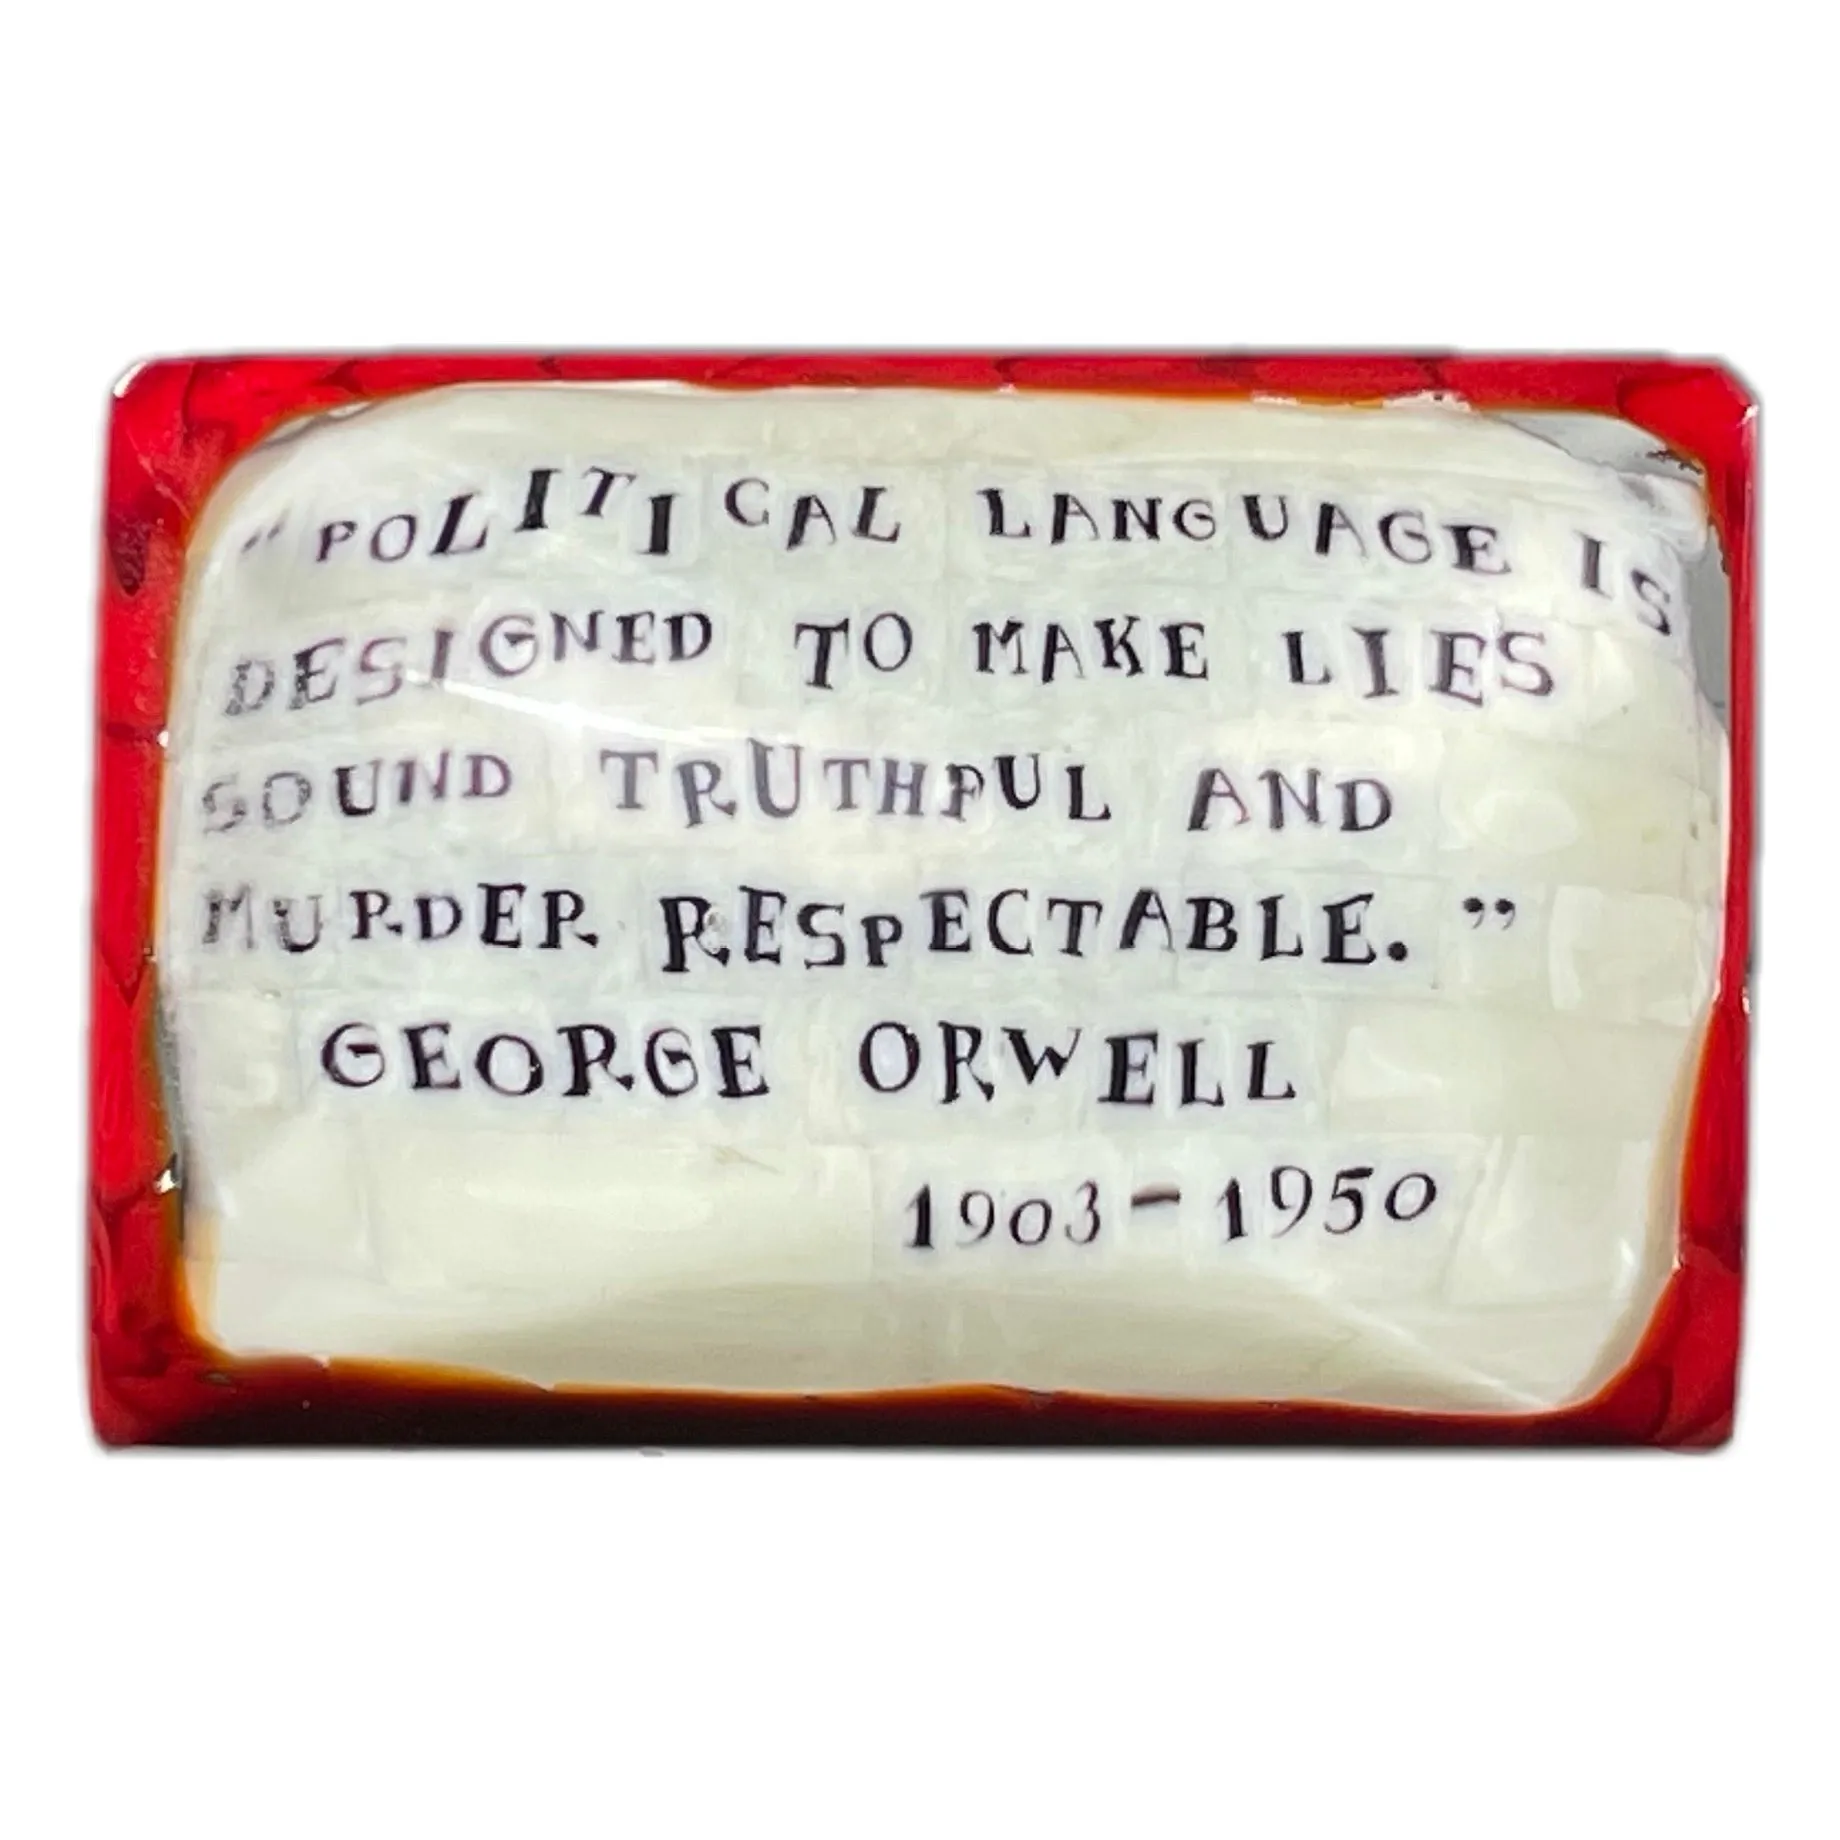 “POLITICAL LANGUAGE IS
DESIGNED TO MAKE LIES
SOUND TRUTHFUL AND
MURDER RESPECTABLE.”
GEORGE ORWELL
1903-1950